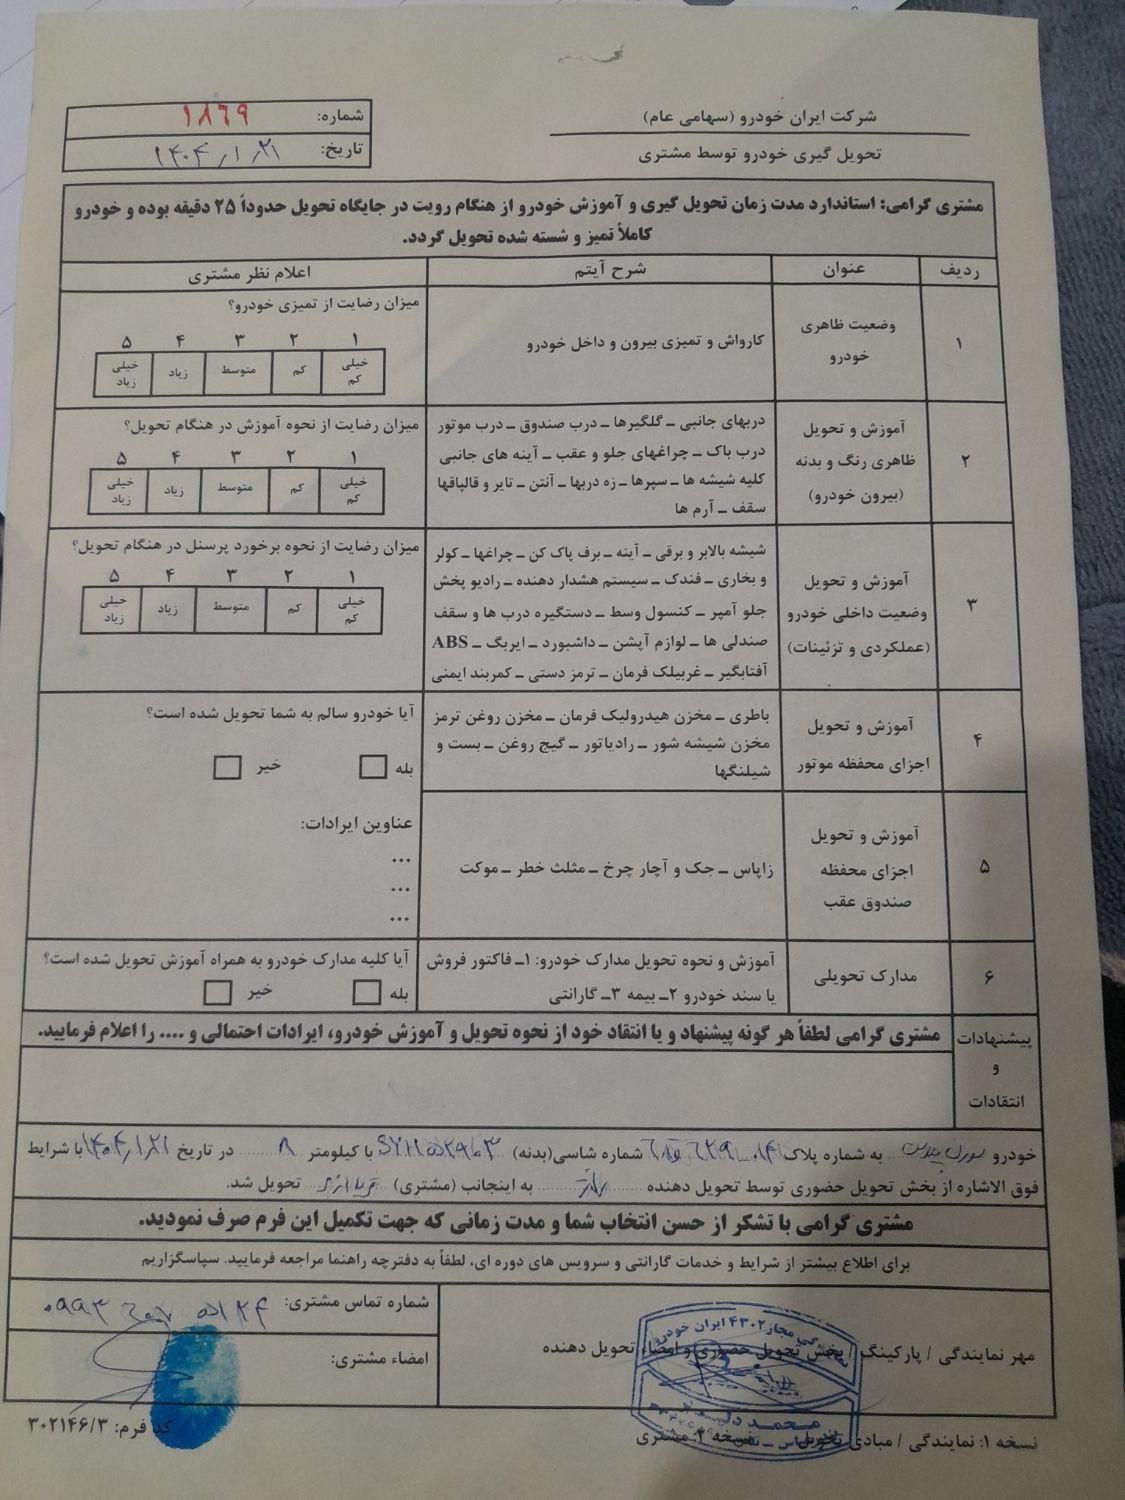 شرکت ایران خودرو (سهامی عام)
تحویل گیری خودرو توسط مشتری
شماره: ۱۸۶۹
تاریخ: ۱۴۰۴/۱/۲۱
مشتری گرامی: استاندارد مدت زمان تحویل گیری و آموزش خودرو از هنگام رویت در جایگاه تحویل حدوداً ۲۵ دقیقه بوده و خودرو
کاملاً تمیز و شسته شده تحویل گردد.
ردیف عنوان شرح آیتم اعلام نظر مشتری
۱
وضعیت ظاهری
خودرو
کارواش و تمیزی بیرون و داخل خودرو
میزان رضایت از تمیزی خودرو؟
۱ ۲ ۳ ۴ ۵
خیلی کم کم متوسط زیاد خیلی زیاد
۲
آموزش و تحویل
ظاهری رنگ و بدنه
(بیرون خودرو)
دربهای جانبی ـ گلگیرها ـ درب صندوق ـ درب موتور
درب باک ـ چراغهای جلو و عقب ـ آینه های جانبی
کلیه شیشه ها ـ سپرها ـ زه دربها ـ آنتن ـ تایر و قالپاقها
سقف ـ آرم ها
میزان رضایت از نحوه آموزش در هنگام تحویل؟
۱ ۲ ۳ ۴ ۵
خیلی کم کم متوسط زیاد خیلی زیاد
۳
آموزش و تحویل
وضعیت داخلی خودرو
(عملکردی و تزئینات)
شیشه بالابر و برقی ـ آینه ـ برف پاک کن ـ چراغها ـ کولر
و بخاری ـ فندک ـ سیستم هشدار دهنده ـ رادیو پخش
جلو آمپر ـ کنسول وسط ـ دستگیره درب ها و سقف
صندلی ها ـ لوازم آپشن ـ داشبورد ـ ایربگ ـ ABS
آفتابگیر ـ غربیلک فرمان ـ ترمز دستی ـ کمربند ایمنی
میزان رضایت از نحوه برخورد پرسنل در هنگام تحویل؟
۱ ۲ ۳ ۴ ۵
خیلی کم کم متوسط زیاد خیلی زیاد
۴
آموزش و تحویل
اجزای محفظه موتور
باطری ـ مخزن هیدرولیک فرمان ـ مخزن روغن ترمز
مخزن شیشه شور ـ رادیاتور ـ گیج روغن ـ بست و
شیلنگها
آیا خودرو سالم به شما تحویل شده است؟
بله خیر
عناوین ایرادات:
...
...
...
۵
آموزش و تحویل
اجزای محفظه
صندوق عقب
زاپاس ـ جک و آچار چرخ ـ مثلث خطر ـ موکت
۶
مدارک تحویلی
آموزش و نحوه تحویل مدارک خودرو: ۱ـ فاکتور فروش
یا سند خودرو ۲ـ بیمه ۳ـ گارانتی
آیا کلیه مدارک خودرو به همراه آموزش تحویل شده است؟
بله خیر
پیشنهادات
و
انتقادات
مشتری گرامی لطفاً هر گونه پیشنهاد و یا انتقاد خود از نحوه تحویل و آموزش خودرو، ایرادات احتمالی و .... را اعلام فرمایید.
خودرو سورن پلاس به شماره پلاک شماره شاسی(بدنه) با کیلومتر ۸ در تاریخ ۱۴۰۴/۱/۲۱ با شرایط
فوق الاشاره از بخش تحویل حضوری توسط تحویل دهنده به اینجانب (مشتری) تحویل شد.
مشتری گرامی با تشکر از حسن انتخاب شما و مدت زمانی که جهت تکمیل این فرم صرف نمودید.
برای اطلاع بیشتر از شرایط و خدمات گارانتی و سرویس های دوره ای، لطفاً به دفترچه راهنما مراجعه فرمایید. سپاسگزاریم
شماره تماس مشتری:
مهر نمایندگی / پارکینگ / بخش تحویل حضوری و امضاء تحویل دهنده
امضاء مشتری:
نمایندگی مجاز ۴۳۰۲ ایران خودرو
نسخه ۱: نمایندگی / مبادی تحویل نسخه ۲: مشتری
کد فرم: ۳۰۲۱۴۶/۳